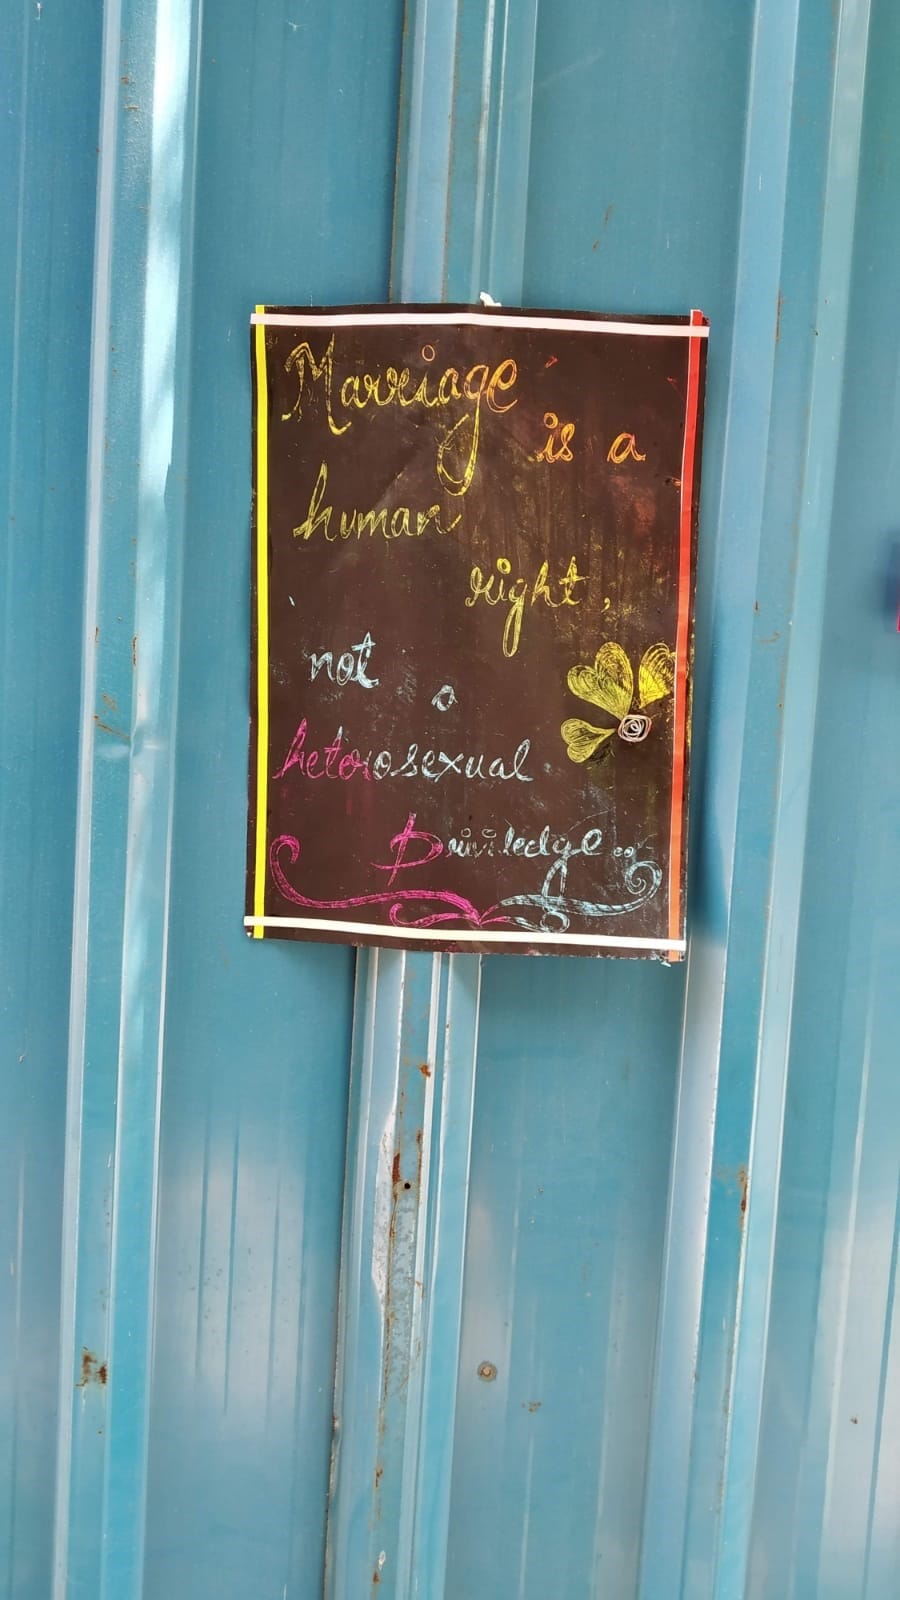 Marriage
is a
human
right,
not a
heterosexual
Priviledge..